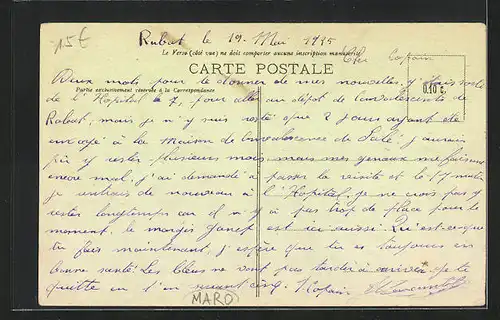 15 €
Rabat le 19 Mai 1925
Le Verso (côté vue) ne doit comporter aucune inscription manuscrite
Cher Copain
CARTE POSTALE
Deux mots pour te donner de mes nouvelles, je suis sorti
Partie exclusivement réservée à la Correspondance
0.10 c.
de l'Hopital le 7, pour aller au depot de Convalescents de
Rabat, mais je n'y suis resté que 2 jours ayant été
envoyé à la Maison de Convalescence de Salé, j'aurais
pu y rester plusieurs mois mais mes genoux me faisant
encore mal, j'ai demandé à passer la visite et le 17 matin
je rentrais de nouveau à l'Hopital, je ne crois pas y
rester longtemps car il n'y a pas trop de place pour le
moment, le margis est ici aussi. Qu'est-ce que
tu fais maintenant, j'espère que tu es toujours en
bonne santé. Les bleus ne vont pas tarder à arriver, je te
quitte en t'en serrant cinq. Copain
MARO